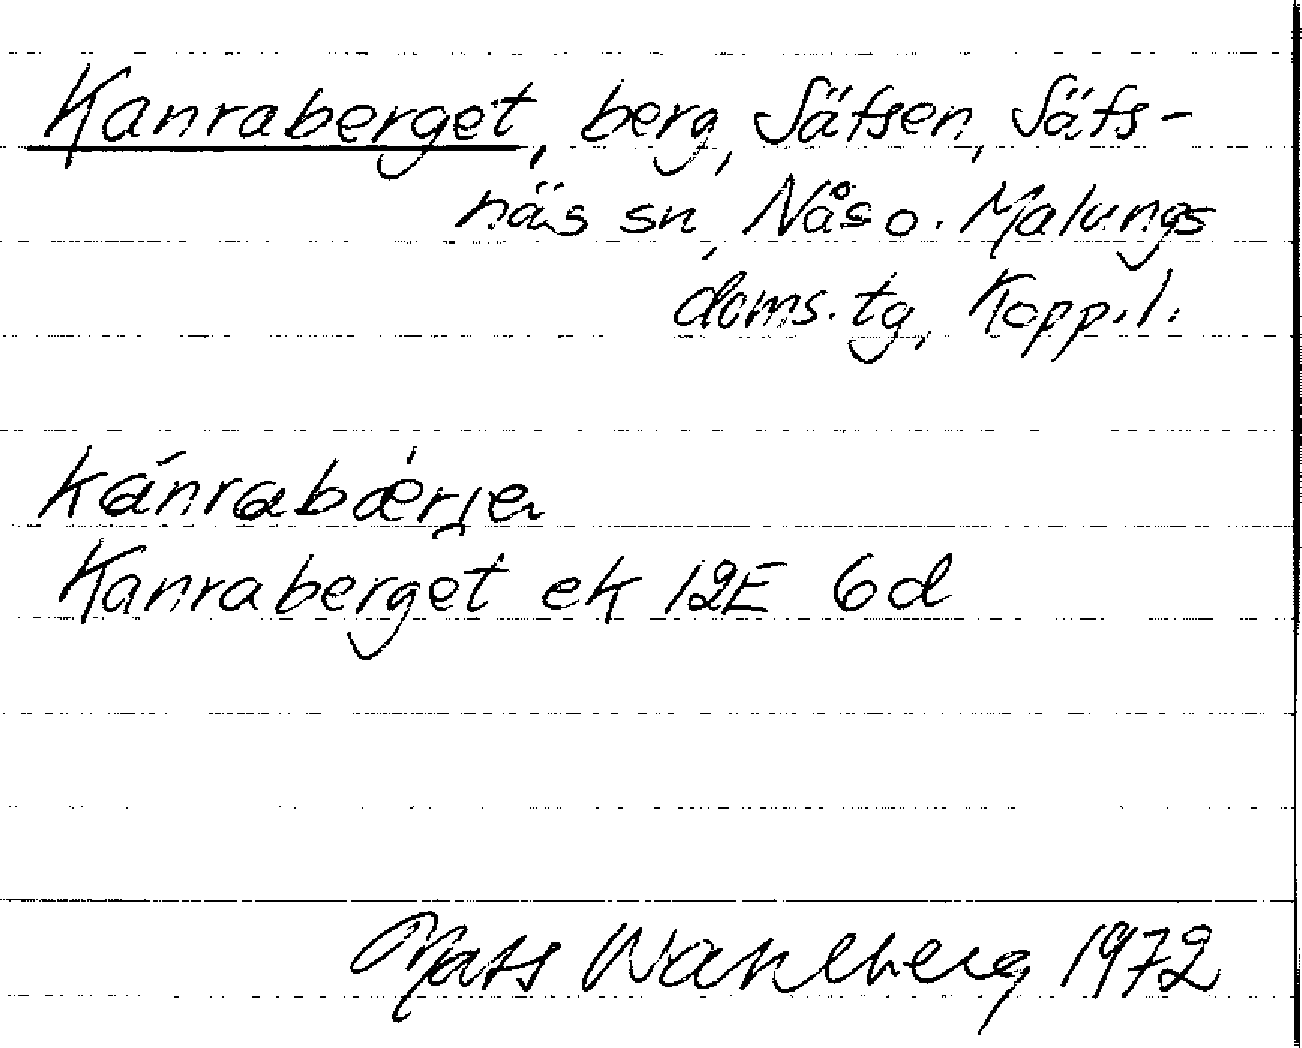 Kanraberget, berg, Säfsen, Säfs-
näs sn, Nås o. Malungs
doms. tg, Kopp. l.
kánrabær̀jen
Kanraberget ek 12E 6d
Mats Wahlberg 1972